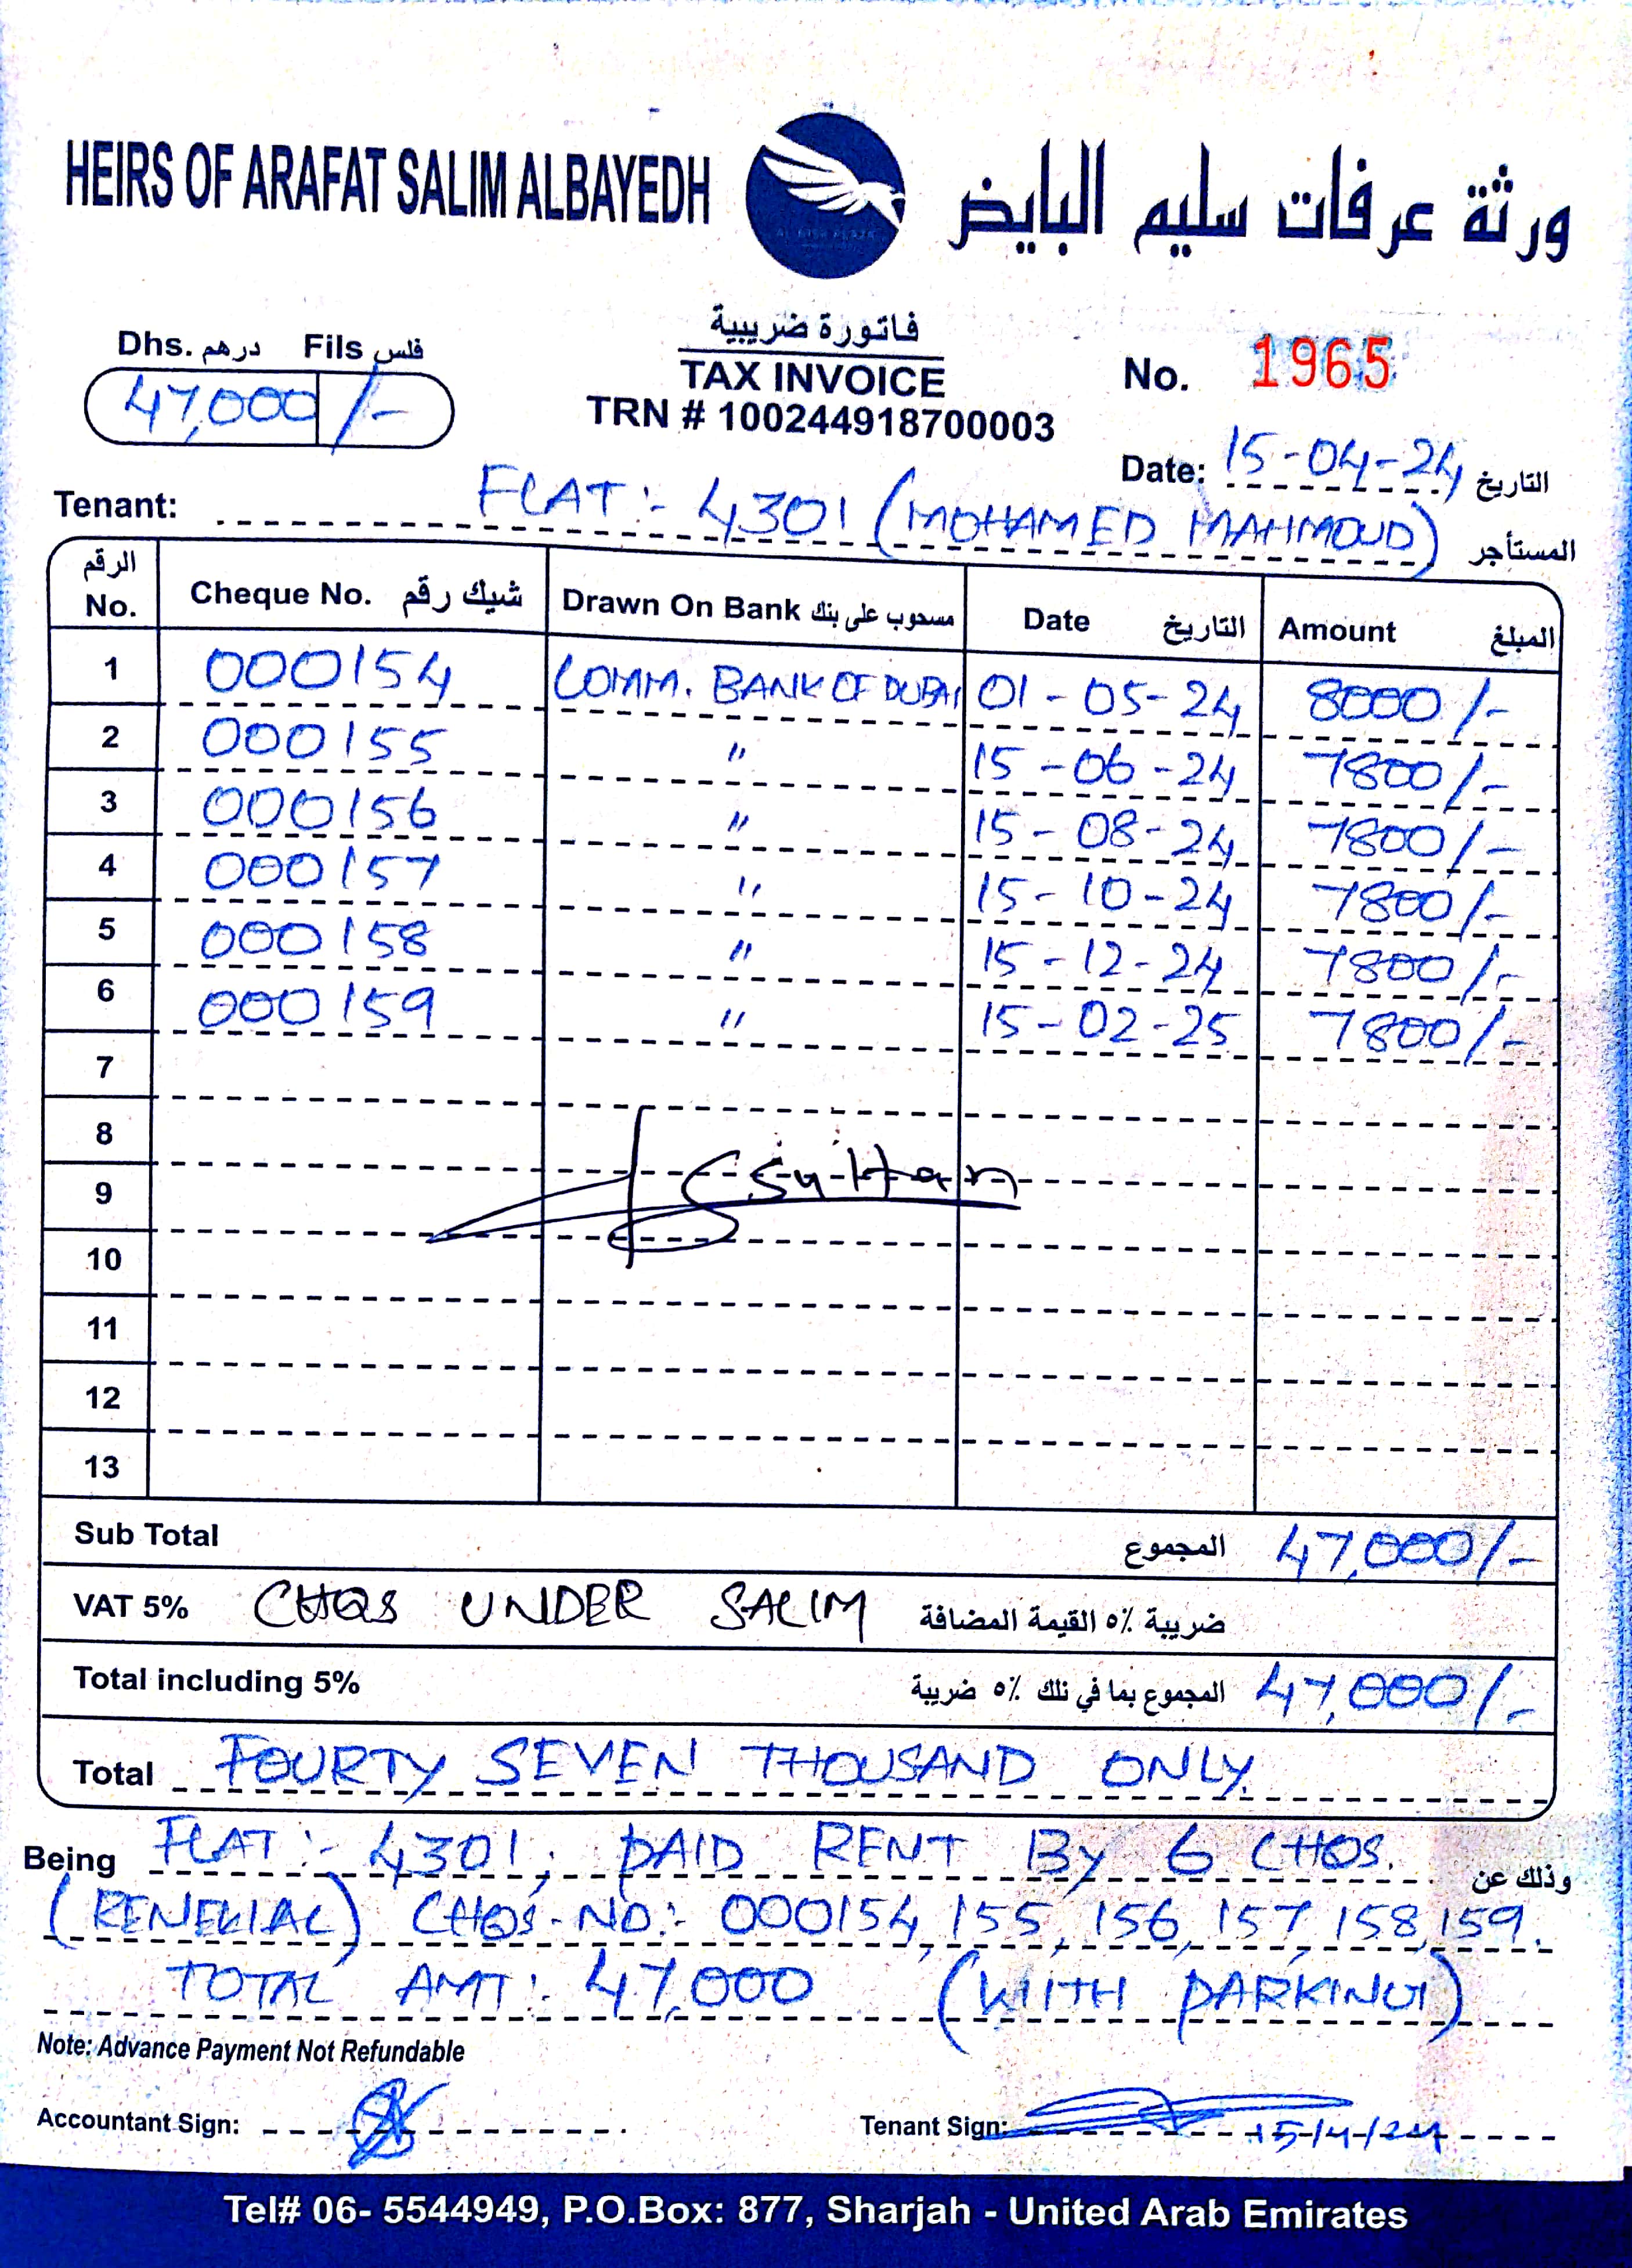 HEIRS OF ARAFAT SALIM ALBAYEDH ورثة عرفات سليم البايض
Dhs. درهم Fils فلس
47,000 /-
فاتورة ضريبية
TAX INVOICE
TRN # 100244918700003
No. 1965
Date: 15-04-24 التاريخ
Tenant: FLAT:- 4301 (MOHAMED MAHMOUD) المستأجر
الرقم No. Cheque No. شيك رقم Drawn On Bank مسحوب على بنك Date التاريخ Amount المبلغ
1 000154 COMM. BANK OF DUBAI 01-05-24 8000/-
2 000155 " 15-06-24 7800/-
3 000156 " 15-08-24 7800/-
4 000157 " 15-10-24 7800/-
5 000158 " 15-12-24 7800/-
6 000159 " 15-02-25 7800/-
7
8
9 Sultan
10
11
12
13
Sub Total المجموع 47,000/-
VAT 5% CHQS UNDER SALIM ضريبة ٥٪ القيمة المضافة
Total including 5% المجموع بما في تلك ٥٪ ضريبة 47,000/-
Total FOURTY SEVEN THOUSAND ONLY.
Being FLAT:- 4301, PAID RENT By 6 CHQS. وذلك عن
(RENEWAL) CHQS-NO:- 000154, 155, 156, 157, 158, 159.
TOTAL AMT: 47,000 (WITH PARKING)
Note: Advance Payment Not Refundable
Accountant Sign:
Tenant Sign: 15/4/24
Tel# 06- 5544949, P.O.Box: 877, Sharjah - United Arab Emirates